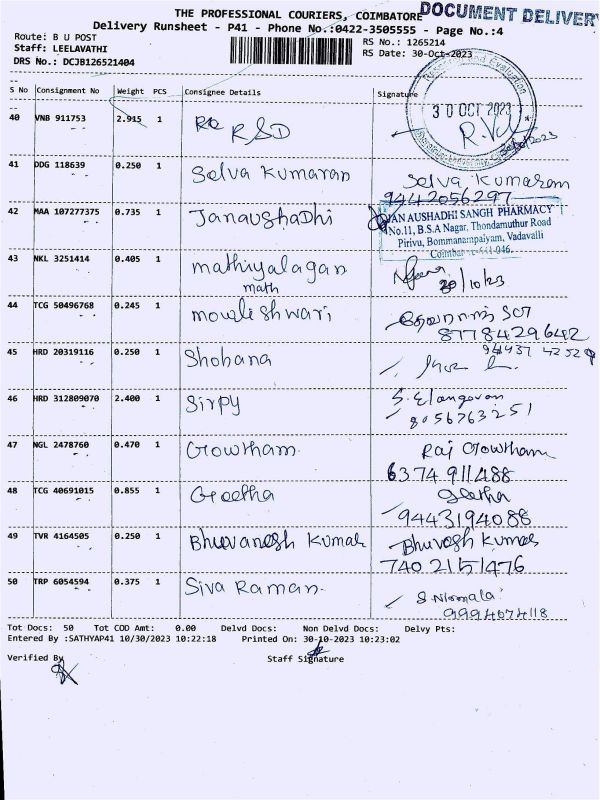 THE PROFESSIONAL COURIERS, COIMBATORE DOCUMENT DELIVERY
Delivery Runsheet - P41 - Phone No.:0422-3505555 - Page No.:4
Route: B U POST RS No.: 1265214
Staff: LEELAVATHI RS Date: 30-Oct-2023
DRS No.: DCJB126521404
S No Consignment No Weight PCS Consignee Details Signature
30 OCT 2023
40 VNB 911753 2.915 1 RSD
41 DDG 118639 0.250 1 Selva Kumaran Selva Kumaram
9442056297
42 MAA 107277375 0.735 1 Janaushadhi JAN AUSHADHI SANGH PHARMACY
No.11, B.S.A Nagar, Thondamuthur Road
Pirivu, Bommanampaiyam, Vadavalli
43 NKL 3251414 0.405 1 mathiyalagan 30/10/23
math
44 TCG 50496768 0.245 1 mouleshwari
8778429642
45 HRD 20319116 0.250 1 Shobana
46 HRD 312809070 2.400 1 Sirpy S. Elangovan
8056763251
47 NGL 2478760 0.470 1 Gowtham Raj Gowtham
6374 911488
48 TCG 40691015 0.855 1 Geetha geetha
9443194088
49 TVR 4164505 0.250 1 Bhuvanesh Kumar Bhuvesh Kumar
740 2151476
50 TRP 6054594 0.375 1 Siva Raman. S. Nirmala
9994074118
Tot Docs: 50 Tot COD Amt: 0.00 Delvd Docs: Non Delvd Docs: Delvy Pts:
Entered By :SATHYAP41 10/30/2023 10:22:18 Printed On: 30-10-2023 10:23:02
Verified By Staff Signature